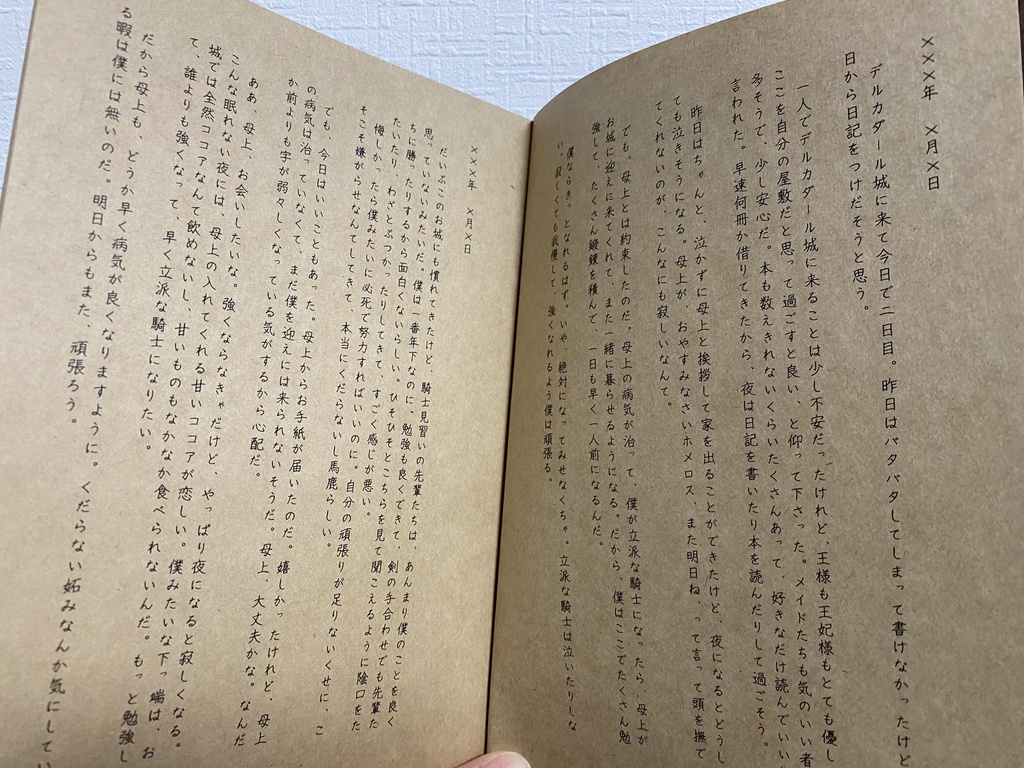 ×××年　×月×日
デルカダール城に来て今日で二日目。昨日はバタバタしてしまって書けなかったけど
日から日記をつけだそうと思う。
一人でデルカダール城に来ることは少し不安だったけれど、王様も王妃様もとても優し
ここを自分の屋敷だと思って過ごすと良い、と仰って下さった。メイドたちも気のいい者
多そうで、少し安心だ。本も数えきれないくらいたくさんあって、好きなだけ読んでいい
言われた。早速何冊か借りてきたから、夜は日記を書いたり本を読んだりして過ごそう。
昨日はちゃんと、泣かずに母上と挨拶して家を出ることができたけど、夜になるとどうし
ても泣きそうになる。母上が、おやすみなさいホメロス、また明日ね、って言って頭を撫で
てくれないのが、こんなにも寂しいなんて。
でも、母上とは約束したのだ。母上の病気が治って、僕が立派な騎士になったら、母上が
お城に迎えに来てくれて、また一緒に暮らせるようになる。だから、僕はここでたくさん勉
強して、たくさん鍛錬を積んで、一日も早く一人前になるんだ。
僕ならきっとなれるはず。いや、絶対になってみせなくちゃ。立派な騎士は泣いたりしな
い、寂しくても我慢して、強くなれるよう僕は頑張る。
×××年　×月×日
だいぶこのお城にも慣れてきたけど、騎士見習いの先輩たちは、あんまり僕のことを良く
思っていないみたいだ。僕は一番年下なのに、勉強も良くできて、剣の手合わせでも先輩た
ちに勝ったりするから面白くないらしい。ひそひそとこちらを見て聞こえるように陰口をた
たいたり、わざとぶつかったりしてきて、すごく感じが悪い。
悔しかったら僕みたいに必死で努力すればいいのに。自分の頑張りが足りないくせに、こ
そこそ嫌がらせなんてしてきて、本当にくだらないし馬鹿らしい。
でも、今日はいいこともあった。母上からお手紙が届いたのだ。嬉しかったけれど、母上
の病気は治っていなくて、まだ僕を迎えには来られないそうだ。母上、大丈夫かな。なんだ
か前よりも字が弱々しくなっている気がするから心配だ。
ああ、母上、お会いしたいな。強くならなきゃだけど、やっぱり夜になると寂しくなる。
こんな眠れない夜には、母上の入れてくれる甘いココアが恋しい。僕みたいな下っ端は、お
城では全然ココアなんて飲めないし、甘いものもなかなか食べられないんだ。もっと勉強し
て、誰よりも強くなって、早く立派な騎士になりたい。
だから母上も、どうか早く病気が良くなりますように。くだらない妬みなんか気にしてい
る暇は僕には無いのだ。明日からもまた、頑張ろう。